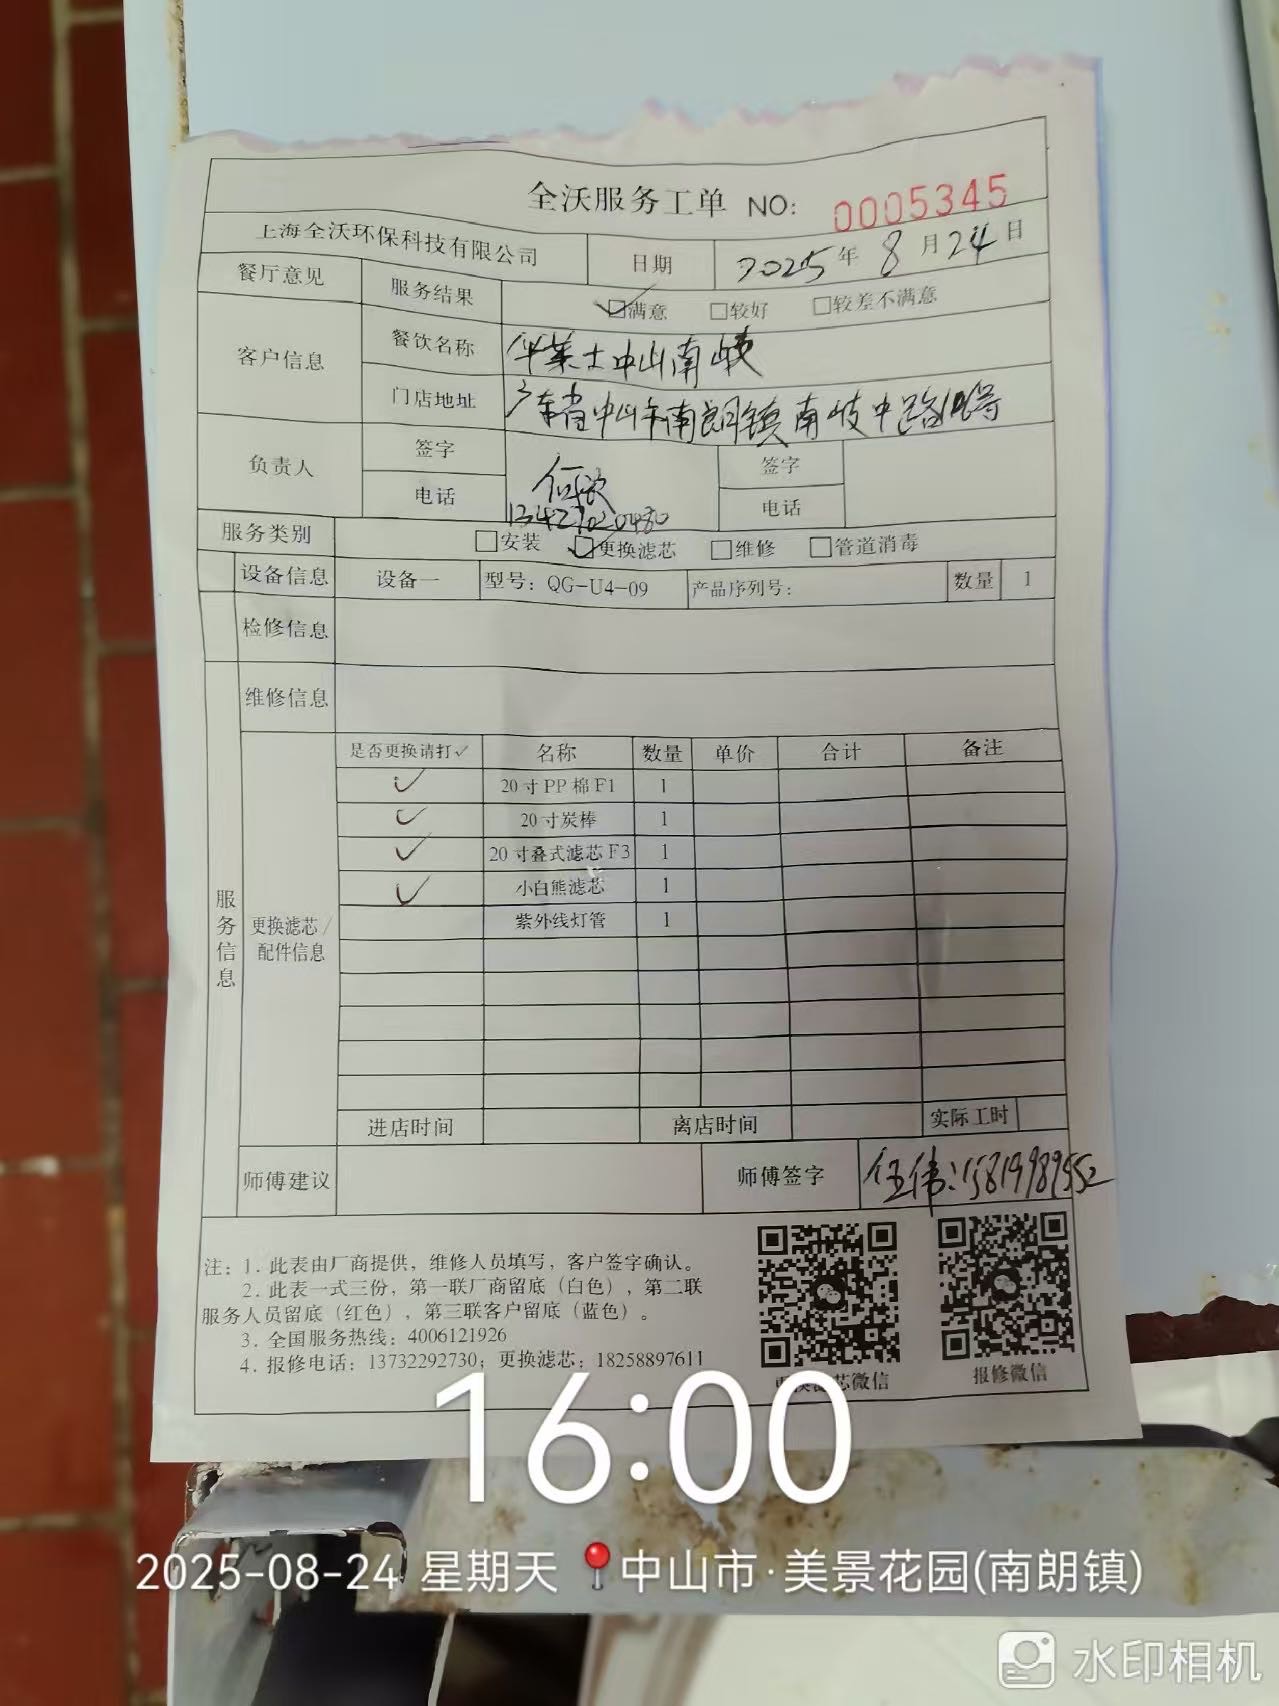 全沃服务工单 NO: 0005345
上海全沃环保科技有限公司 日期 2025年8月24日
餐厅意见 服务结果 ☑满意 □较好 □较差不满意
客户信息 餐饮名称 华莱士中山南岐
门店地址 广东省中山市南朗镇南岐中路
负责人 签字 签字
电话 13427020480 电话
服务类别 □安装 ☑更换滤芯 □维修 □管道消毒
设备信息 设备一 型号：QG-U4-09 产品序列号： 数量 1
检修信息
维修信息
服务信息
更换滤芯/配件信息
是否更换请打✓ 名称 数量 单价 合计 备注
✓ 20寸PP棉F1 1
✓ 20寸炭棒 1
✓ 20寸叠式滤芯F3 1
✓ 小白熊滤芯 1
紫外线灯管 1
进店时间 离店时间 实际工时
师傅建议 师傅签字 伍伟：15819989552
注：1．此表由厂商提供，维修人员填写，客户签字确认。
2．此表一式三份，第一联厂商留底（白色），第二联
服务人员留底（红色），第三联客户留底（蓝色）。
3．全国服务热线：4006121926
4．报修电话：13732292730；更换滤芯：18258897611
更换滤芯微信 报修微信
16:00
2025-08-24 星期天 中山市·美景花园(南朗镇)
水印相机